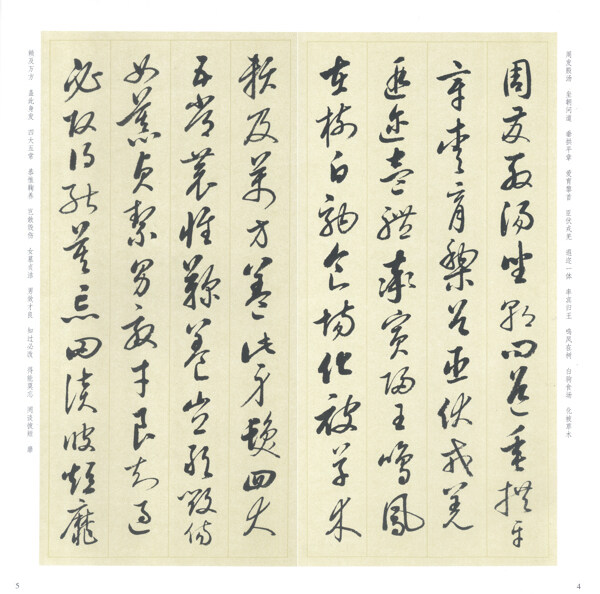 周发殷汤 坐朝问道 垂拱平章 爱育黎首 臣伏戎羌 遐迩一体 率宾归王 鸣凤在树 白驹食场 化被草木
周發殷湯坐朝問道垂拱平
章愛育黎首臣伏戎羌
遐邇壹體率賓歸王鳴鳳
在樹白駒食場化被草木
賴及萬方蓋此身髮四大
五常恭惟鞠養豈敢毀傷
女慕貞絜男效才良知過
必改得能莫忘罔談彼短靡
赖及万方 盖此身发 四大五常 恭惟鞠养 岂敢毁伤 女慕贞洁 男效才良 知过必改 得能莫忘 罔谈彼短 靡
5
4